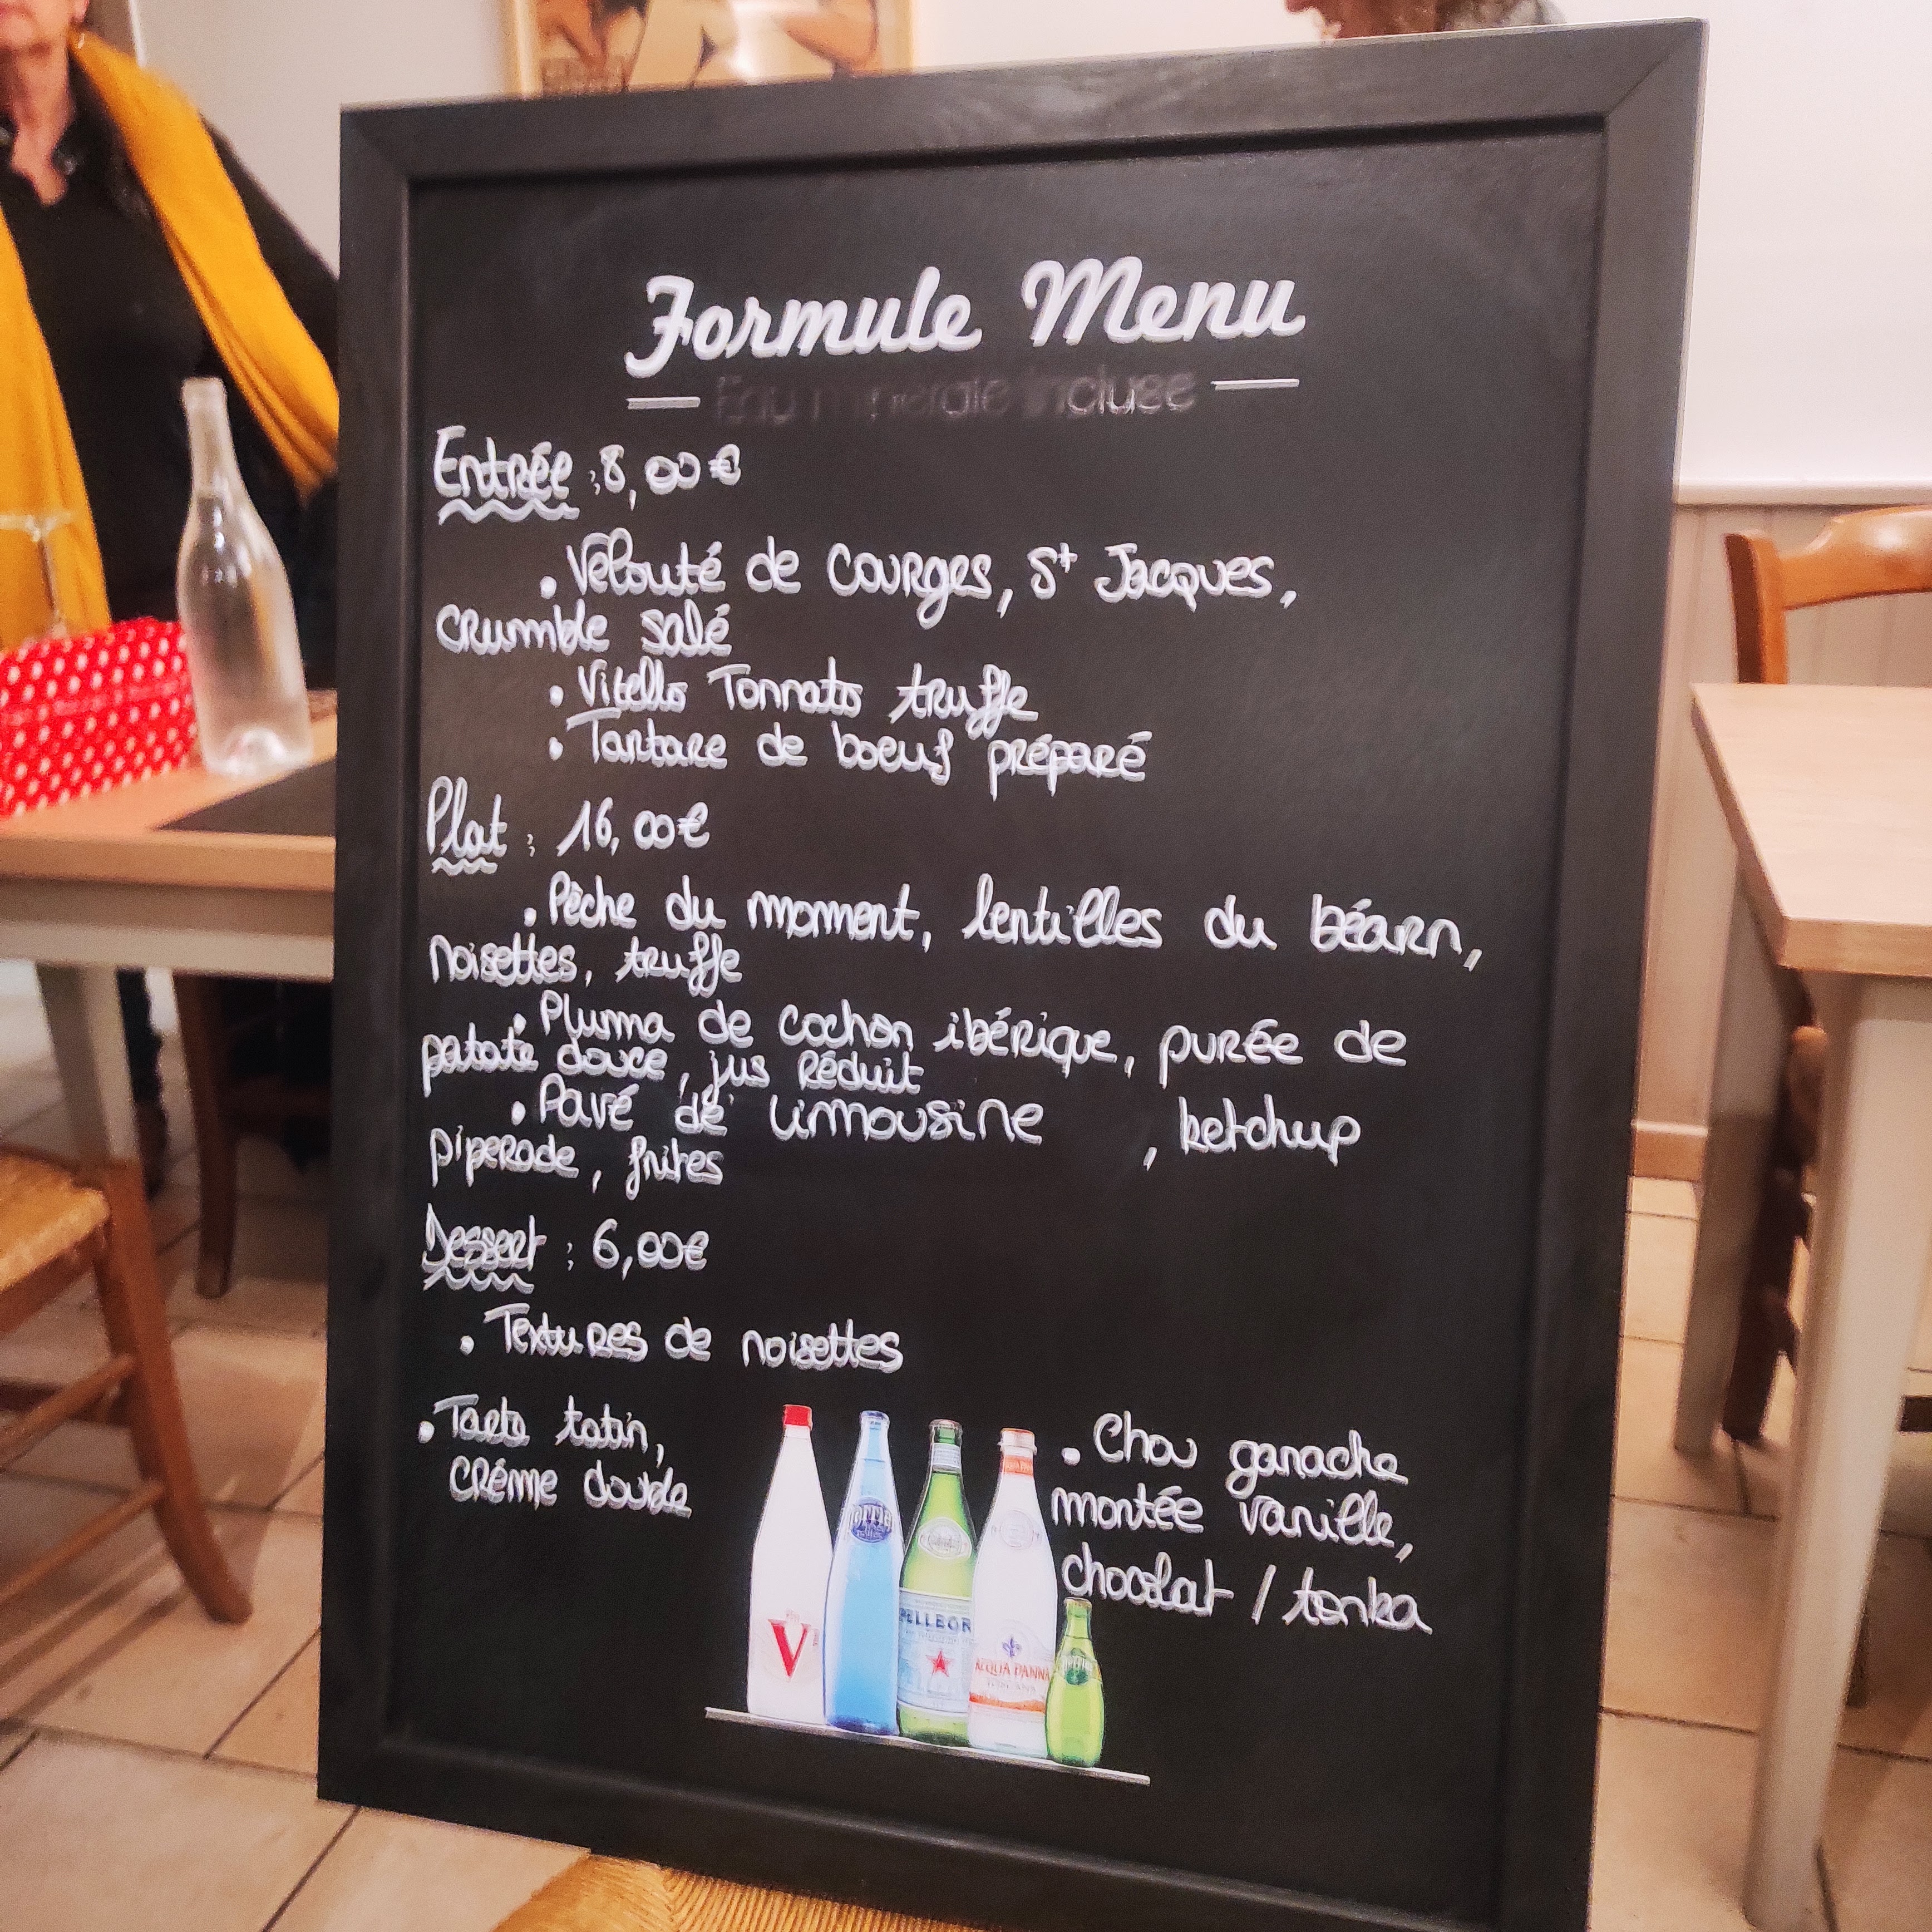 Formule Menu
Eau minérale incluse
Entrée : 8,00€
. Velouté de courges, St Jacques,
crumble salé
. Vitello Tonnato truffe
. Tartare de boeuf préparé
Plat : 16,00€
. Pêche du moment, lentilles du béarn,
noisettes, truffe
. Pluma de cochon ibérique, purée de
patate douce, jus réduit
. Pavé de limousine , ketchup
piperade, frites
Dessert : 6,00€
. Textures de noisettes
. Tarte tatin,
crème double
. Chou ganache
montée vanille,
chocolat / tonka
V
PELLEGR
ACQUA PANNA